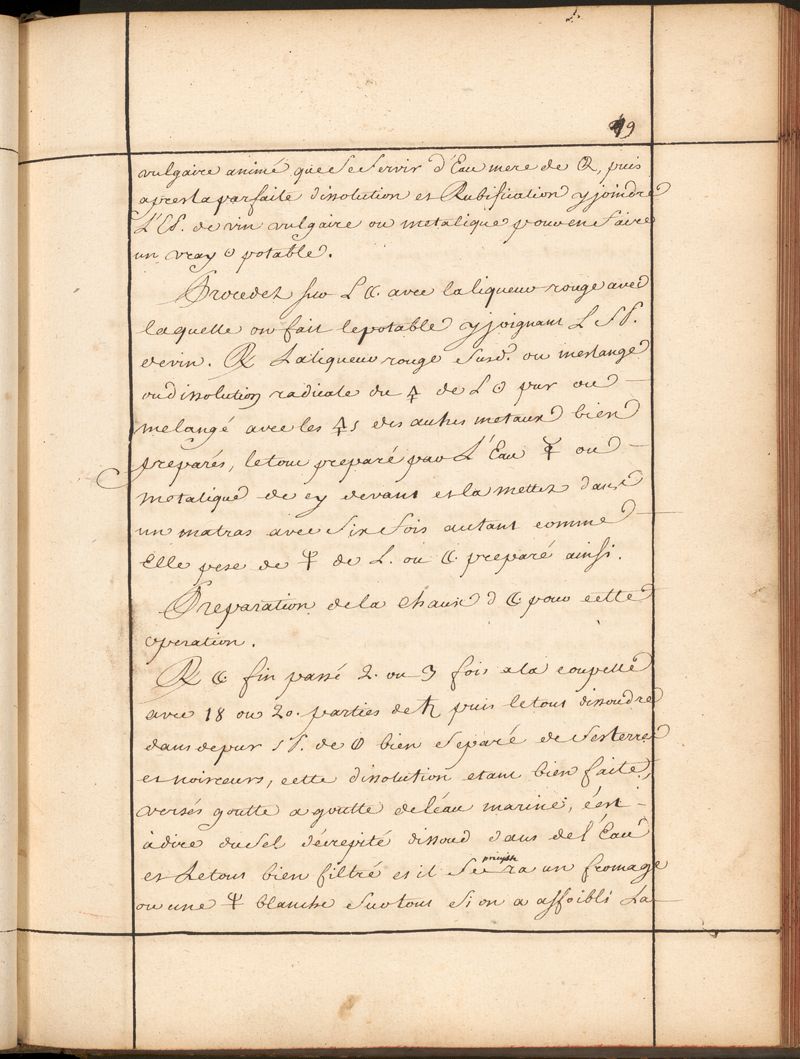 49
vulgaire animé que se servir d'Eau mere de , puis
apres la parfaite dissolution et Rubification y joindre
L'Esp. de vin vulgaire ou metalique pour en faire
un vray ☉ potable.
Procedez sur L ☾. avec la liqueur rouge avec
laquelle on fait le potable y joignant L Sp.
de vin. ℞ La liqueur rouge susd. ou meslange
ou dissolution radicale du 🜍 de L ☉ pur ou
melangé avec les 🜍s des autres metaux bien
preparés, le tout preparé par L'Eau ☿ ou
metalique de cy devant et la mettez dans
un matras avec six fois autant comme
Elle pese de de L. ou ☾. preparé ainsi.
Preparation de la chaux d ☾ pour cette
operation.
℞ ☾ fin passé 2. ou 3 fois a la coupelle
avec 18 ou 20. parties de ♄ puis le tout dissoudre
dans de pur sp. de bien separé de ses terres
et noirceurs, cette dissolution etant bien faite,
versés goutte a goutte de léau marine, c'est
à dire du sel décrepité dissoud dans de l'Eau
et Le tout bien filtré et il se ra un fromage
ou une blanche surtout si on a affoibli La